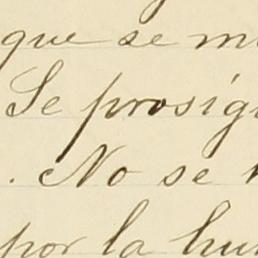 que se m
Se prosig
. No se
por la hu